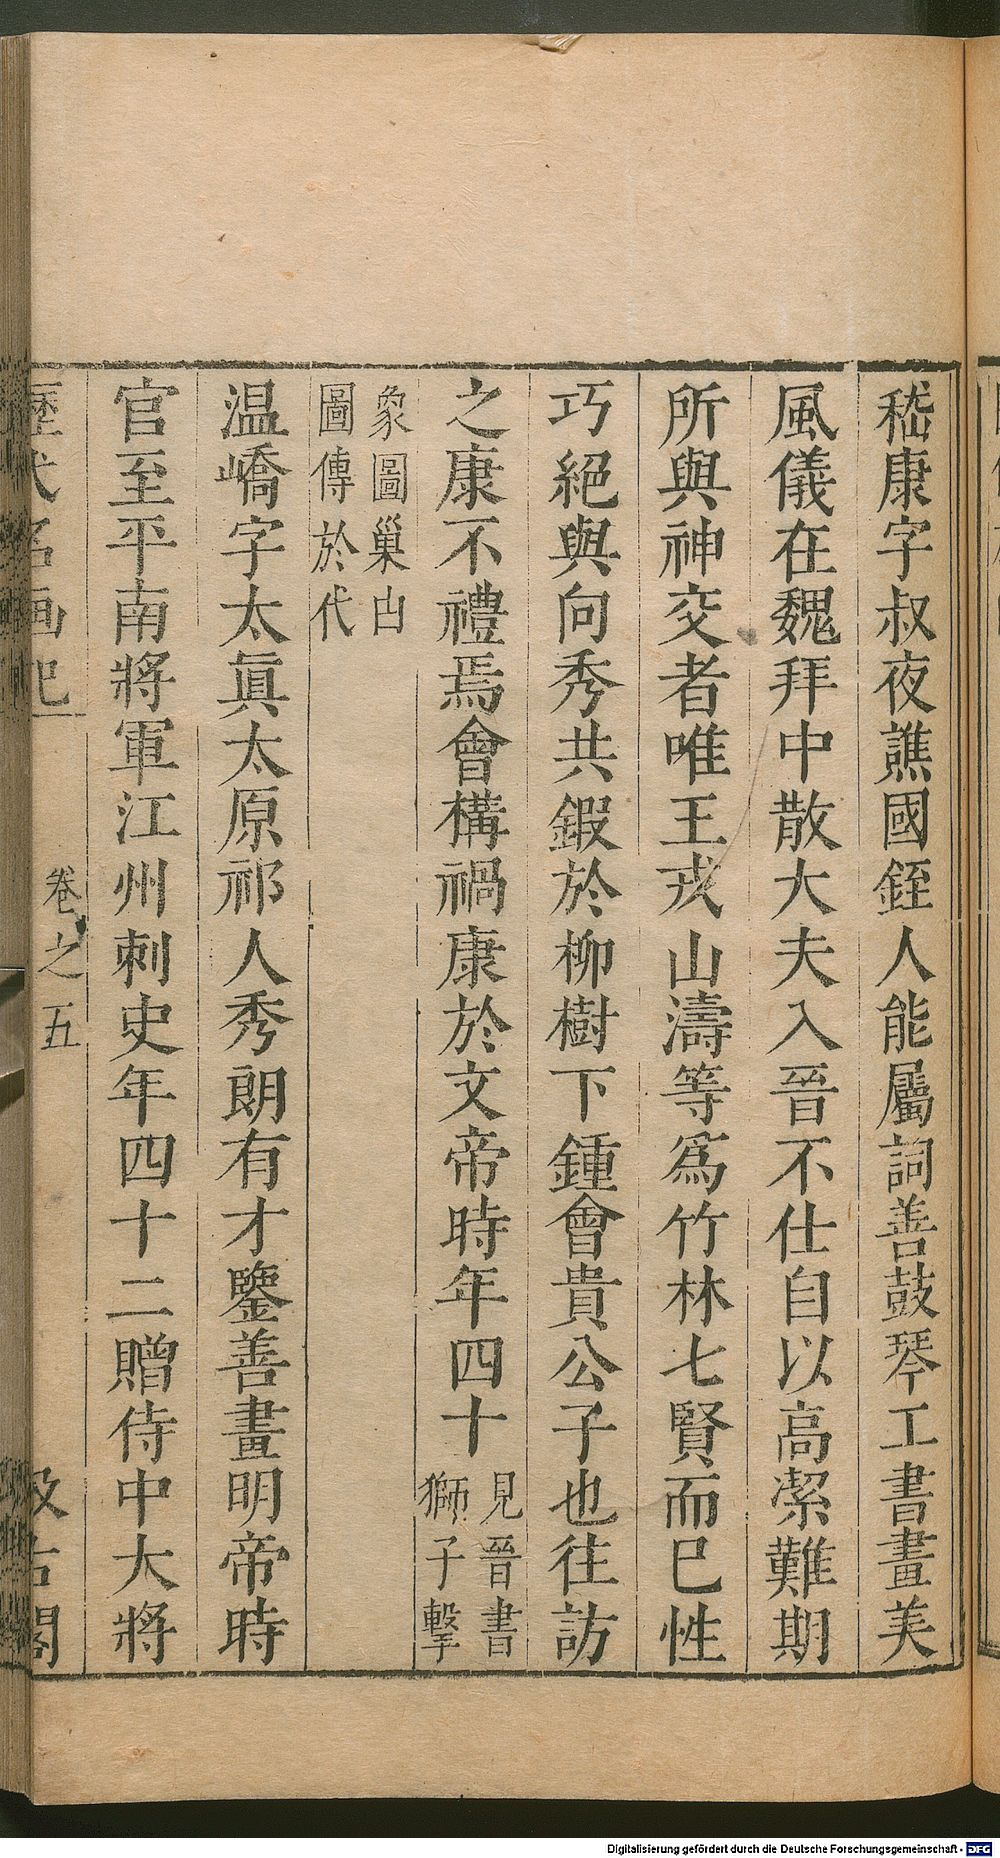 嵇康字叔夜譙國銍人能屬詞善鼓琴工書畫美
風儀在魏拜中散大夫入晉不仕自以高潔難期
所與神交者唯王戎山濤等爲竹林七賢而已性
巧絕與向秀共鍛於柳樹下鍾會貴公子也往訪
之康不禮焉會構禍康於文帝時年四十
見晉書
獅子擊
象圖巢由
圖傳於代
温嶠字太眞太原祁人秀朗有才鑒善畫明帝時
官至平南將軍江州刺史年四十二贈侍中大將
歷代名画記 卷之五 汲古閣
Digitalisierung gefördert durch die Deutsche Forschungsgemeinschaft - DFG